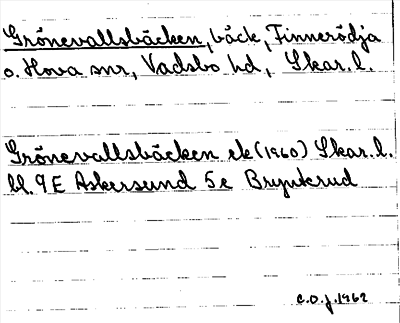 Grönevallsbäcken, bäck, Finnerödja
o. Hova snr, Vadsbo hd, Skar. l.
Grönevallsbäcken ek (1960) Skar. l.
bl. 9E Askersund 5e Brynkrud
C.O.J. 1962